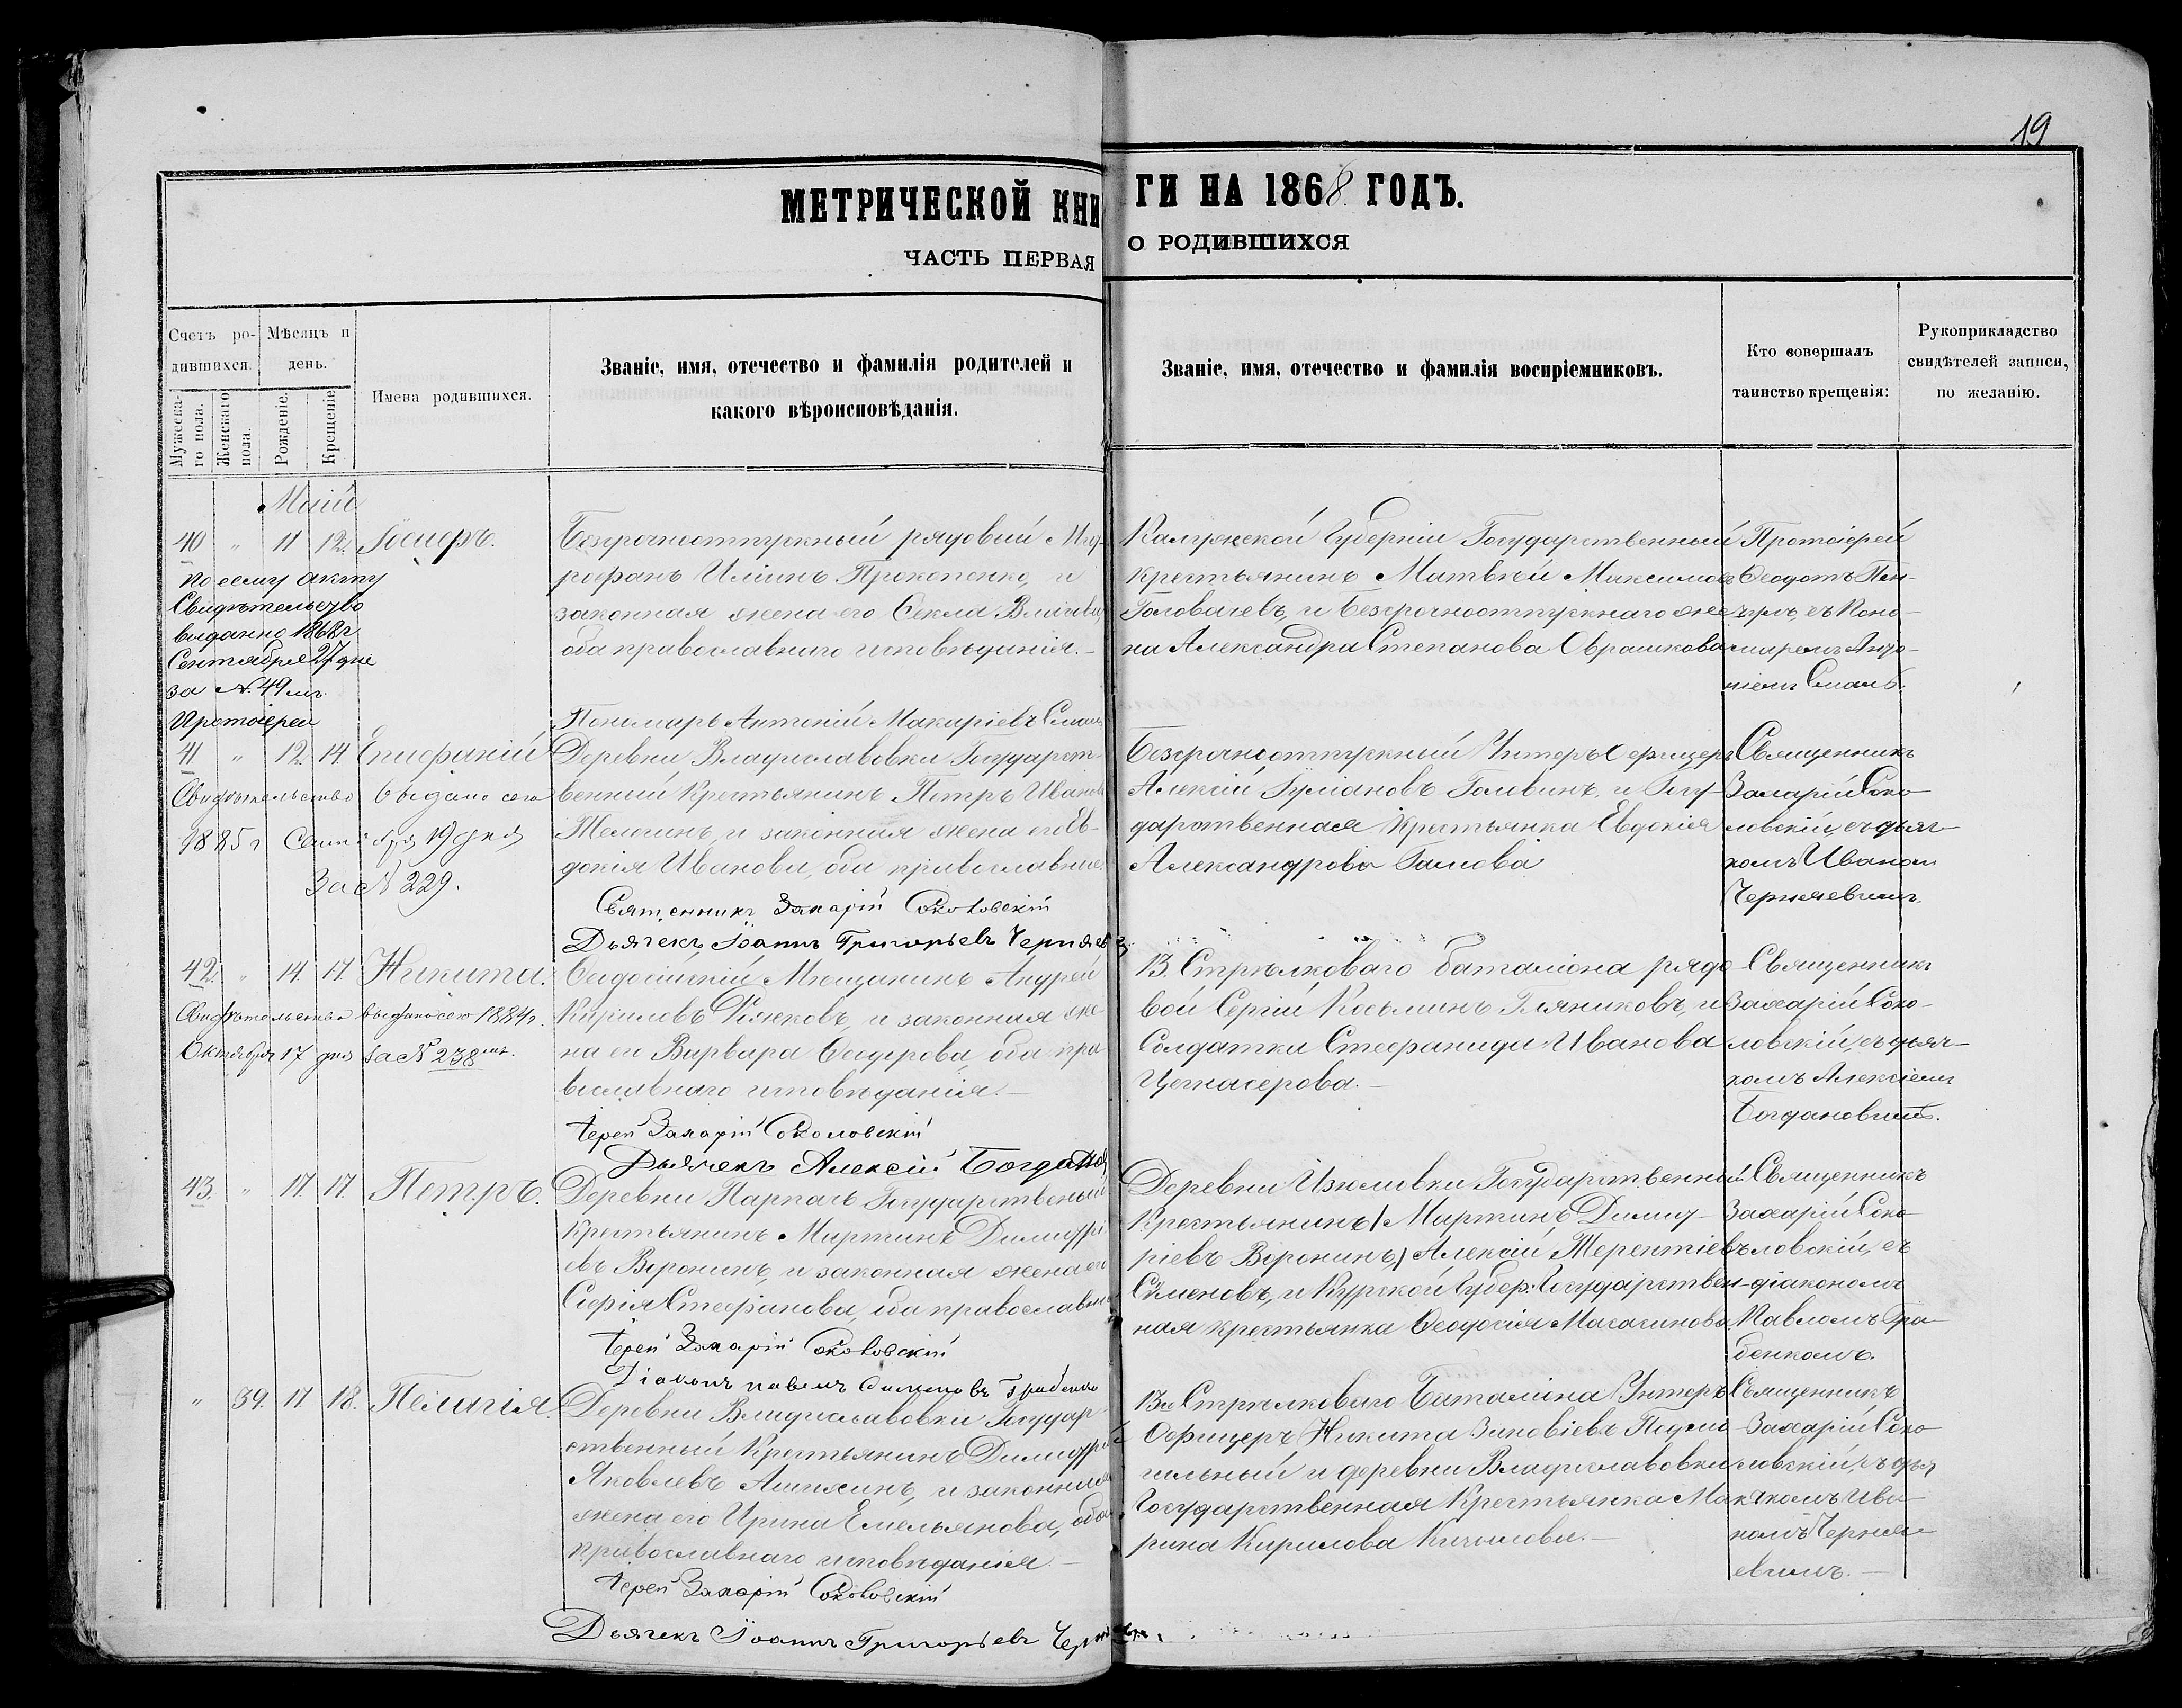 19
МЕТРИЧЕСКОЙ КНИГИ НА 1868 ГОДЪ.
ЧАСТЬ ПЕРВАЯ О РОДИВШИХСЯ
Счетъ ро-
дившихся.
Мужеска-
го пола.
Женскаго
пола.
Мѣсяцъ и
день.
Рожденіе.
Крещеніе
Имена родившихся.
Званіе, имя, отечество и фамилія родителей и
какого вѣроисповѣданія.
Званіе, имя, отечество и фамилія воспріемниковъ.
Кто совершалъ
таинство крещенія:
Рукоприкладство
свидѣтелей записи,
по желанію.
Маій
40 " 11 12. Іосифъ.
По сему акту
Свидѣтельство
выданно 1868 г
Сентября 27 дня
за N. 49 мъ.
Протоіерей
Безсрочноотпускный рядовый Мит-
рофанъ Илiинъ Прокопенко, и
законная жена его Ѳекла
оба православнаго исповѣданія.
Пономарь Антоній Макаріевъ
Калужской Губерніи Государственный
крестьянинъ Матвѣй Максимовъ
Головачевъ, и безсрочноотпускнаго же-
на Александра Степанова
Протоіерей
Ѳеодотъ
съ поно-
маремъ Анто-
ніемъ
41 " 12 14 Епифаній
Свидѣтельство выдано сего
1885 г Сентября 19 дня
За N 229.
Деревни Владиславовки Государст-
венный Крестьянинъ Петръ Ивановъ
и законная жена его Ев-
докія Иванова, оба православные.
Священникъ Захарій Соколовскій
Дьячекъ Іоаннъ Григорьевъ Черняевъ
Безсрочноотпускный Унтеръ Офицеръ
Алексій и Госу-
дарственная Крестьянка Евдокія
Александрова
Священникъ
Захарій Соко-
ловскій, съ дьяч-
комъ Иваномъ
Черняевымъ.
42. " 14. 17 Никита.
Свидѣтельство выдано сего 1884 г.
Октября 17 дня за N 238 мъ.
Ѳеодосійскій Мѣщанинъ Андрей
Кириловъ и законная же-
на его Варвара Ѳедорова, оба пра-
вославнаго исповѣданія.
Іерей Захарій Соколовскій
Дьячекъ Алексій Богдановъ
13 Стрѣлковаго баталіона рядо-
вой Сергій Козьминъ и
Солдатка Стефанида Иванова
Священникъ
Захарій Соко-
ловскій, съ дьяч-
комъ Алексіемъ
Богдановымъ.
43. " 17 17. Петръ.
Деревни Парпачъ Государственный
Крестьянинъ Мартинъ Димитрі-
евъ Воронинъ, и законная жена его
Софія Стефанова, оба православные
Іерей Захарій Соколовскій
Діаконъ Павелъ
Деревни Изюмовки Государственный
Крестьянинъ (Мартинъ Димит-
ріевъ Воронинъ) Алексій Терентіевъ
Семеновъ, и Курской Губер: Государствен-
ная крестьянка Ѳеодосія
Священникъ
Захарій Соко-
ловскій, съ
діакономъ
Павломъ Гра-
бенкомъ.
" 39. 17 18. Пелагія.
Деревни Владиславовки Государ-
ственный Крестьянинъ Димитрій
Яковлевъ и законная
жена его Ирина Емельянова, оба
православнаго исповѣданія
Іерей Захарій Соколовскій
Дьячекъ Іоаннъ Григорьевъ Черняевъ
13го Стрѣлковаго Баталіона Унтеръ
Офицеръ Никита Зиновіевъ
и деревни Владиславовки
Государственная Крестьянка Мак-
рина Кирилова
Священникъ
Захарій Соко-
ловскій, съ дья-
чкомъ Ива-
номъ Черня-
евымъ.